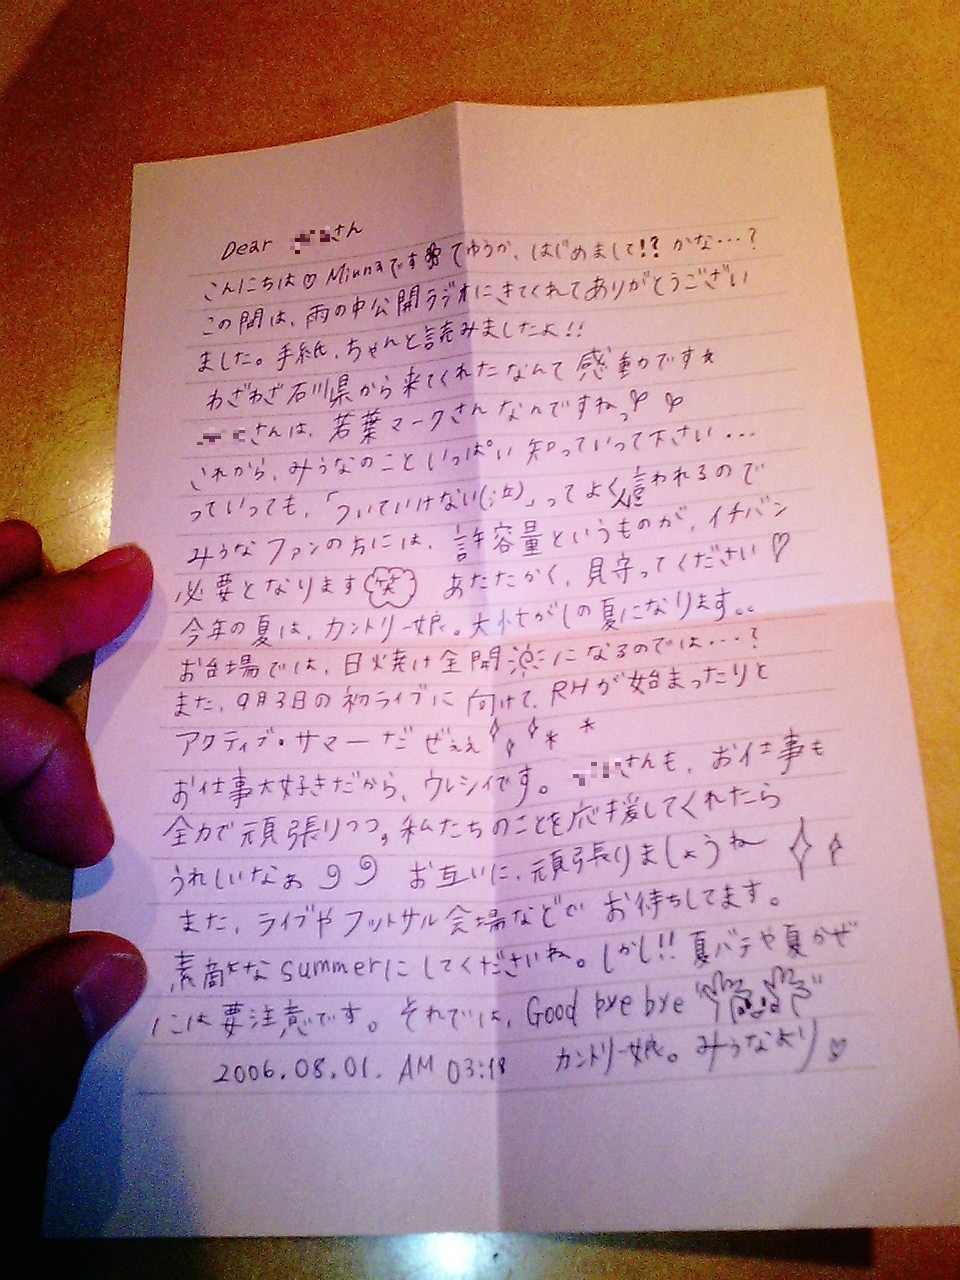 Dear さん
こんにちは♡Miunaです てゆうか、はじめまして!?かな…?
この間は、雨の中公開ラジオにきてくれてありがとうござい
ました。手紙、ちゃんと読みましたよ!!
わざわざ石川県から来てくれたなんて感動です★
さんは、若葉マークさんなんですねっ
これから、みうなのこといっぱい知っていって下さい…
っていっても、「ついていけない(;泣)」ってよく言われるので
みうなファンの方には、許容量というものが、イチバン
必要となります(笑) あたたかく、見守ってください♡
今年の夏は、カントリー娘。大忙がしの夏になります。。
お台場では、日焼け全開になるのでは…?
また、9月3日の初ライブに向けて、RHが始まったりと
アクティブ・サマーだぜぇぇ**
お仕事大好きだから、ウレシイです。さんも、お仕事も
全力で頑張りつつ。私たちのことを応援してくれたら
うれしいなぁ お互いに、頑張りましょうねー
また、ライブやフットサル会場などで お待ちしてます。
素敵なsummerにしてくださいね。しかし!!夏バテや夏かぜ
には要注意です。それでは、Good bye bye
2006.08.01. AM 03:18 カントリー娘。みうなより♡